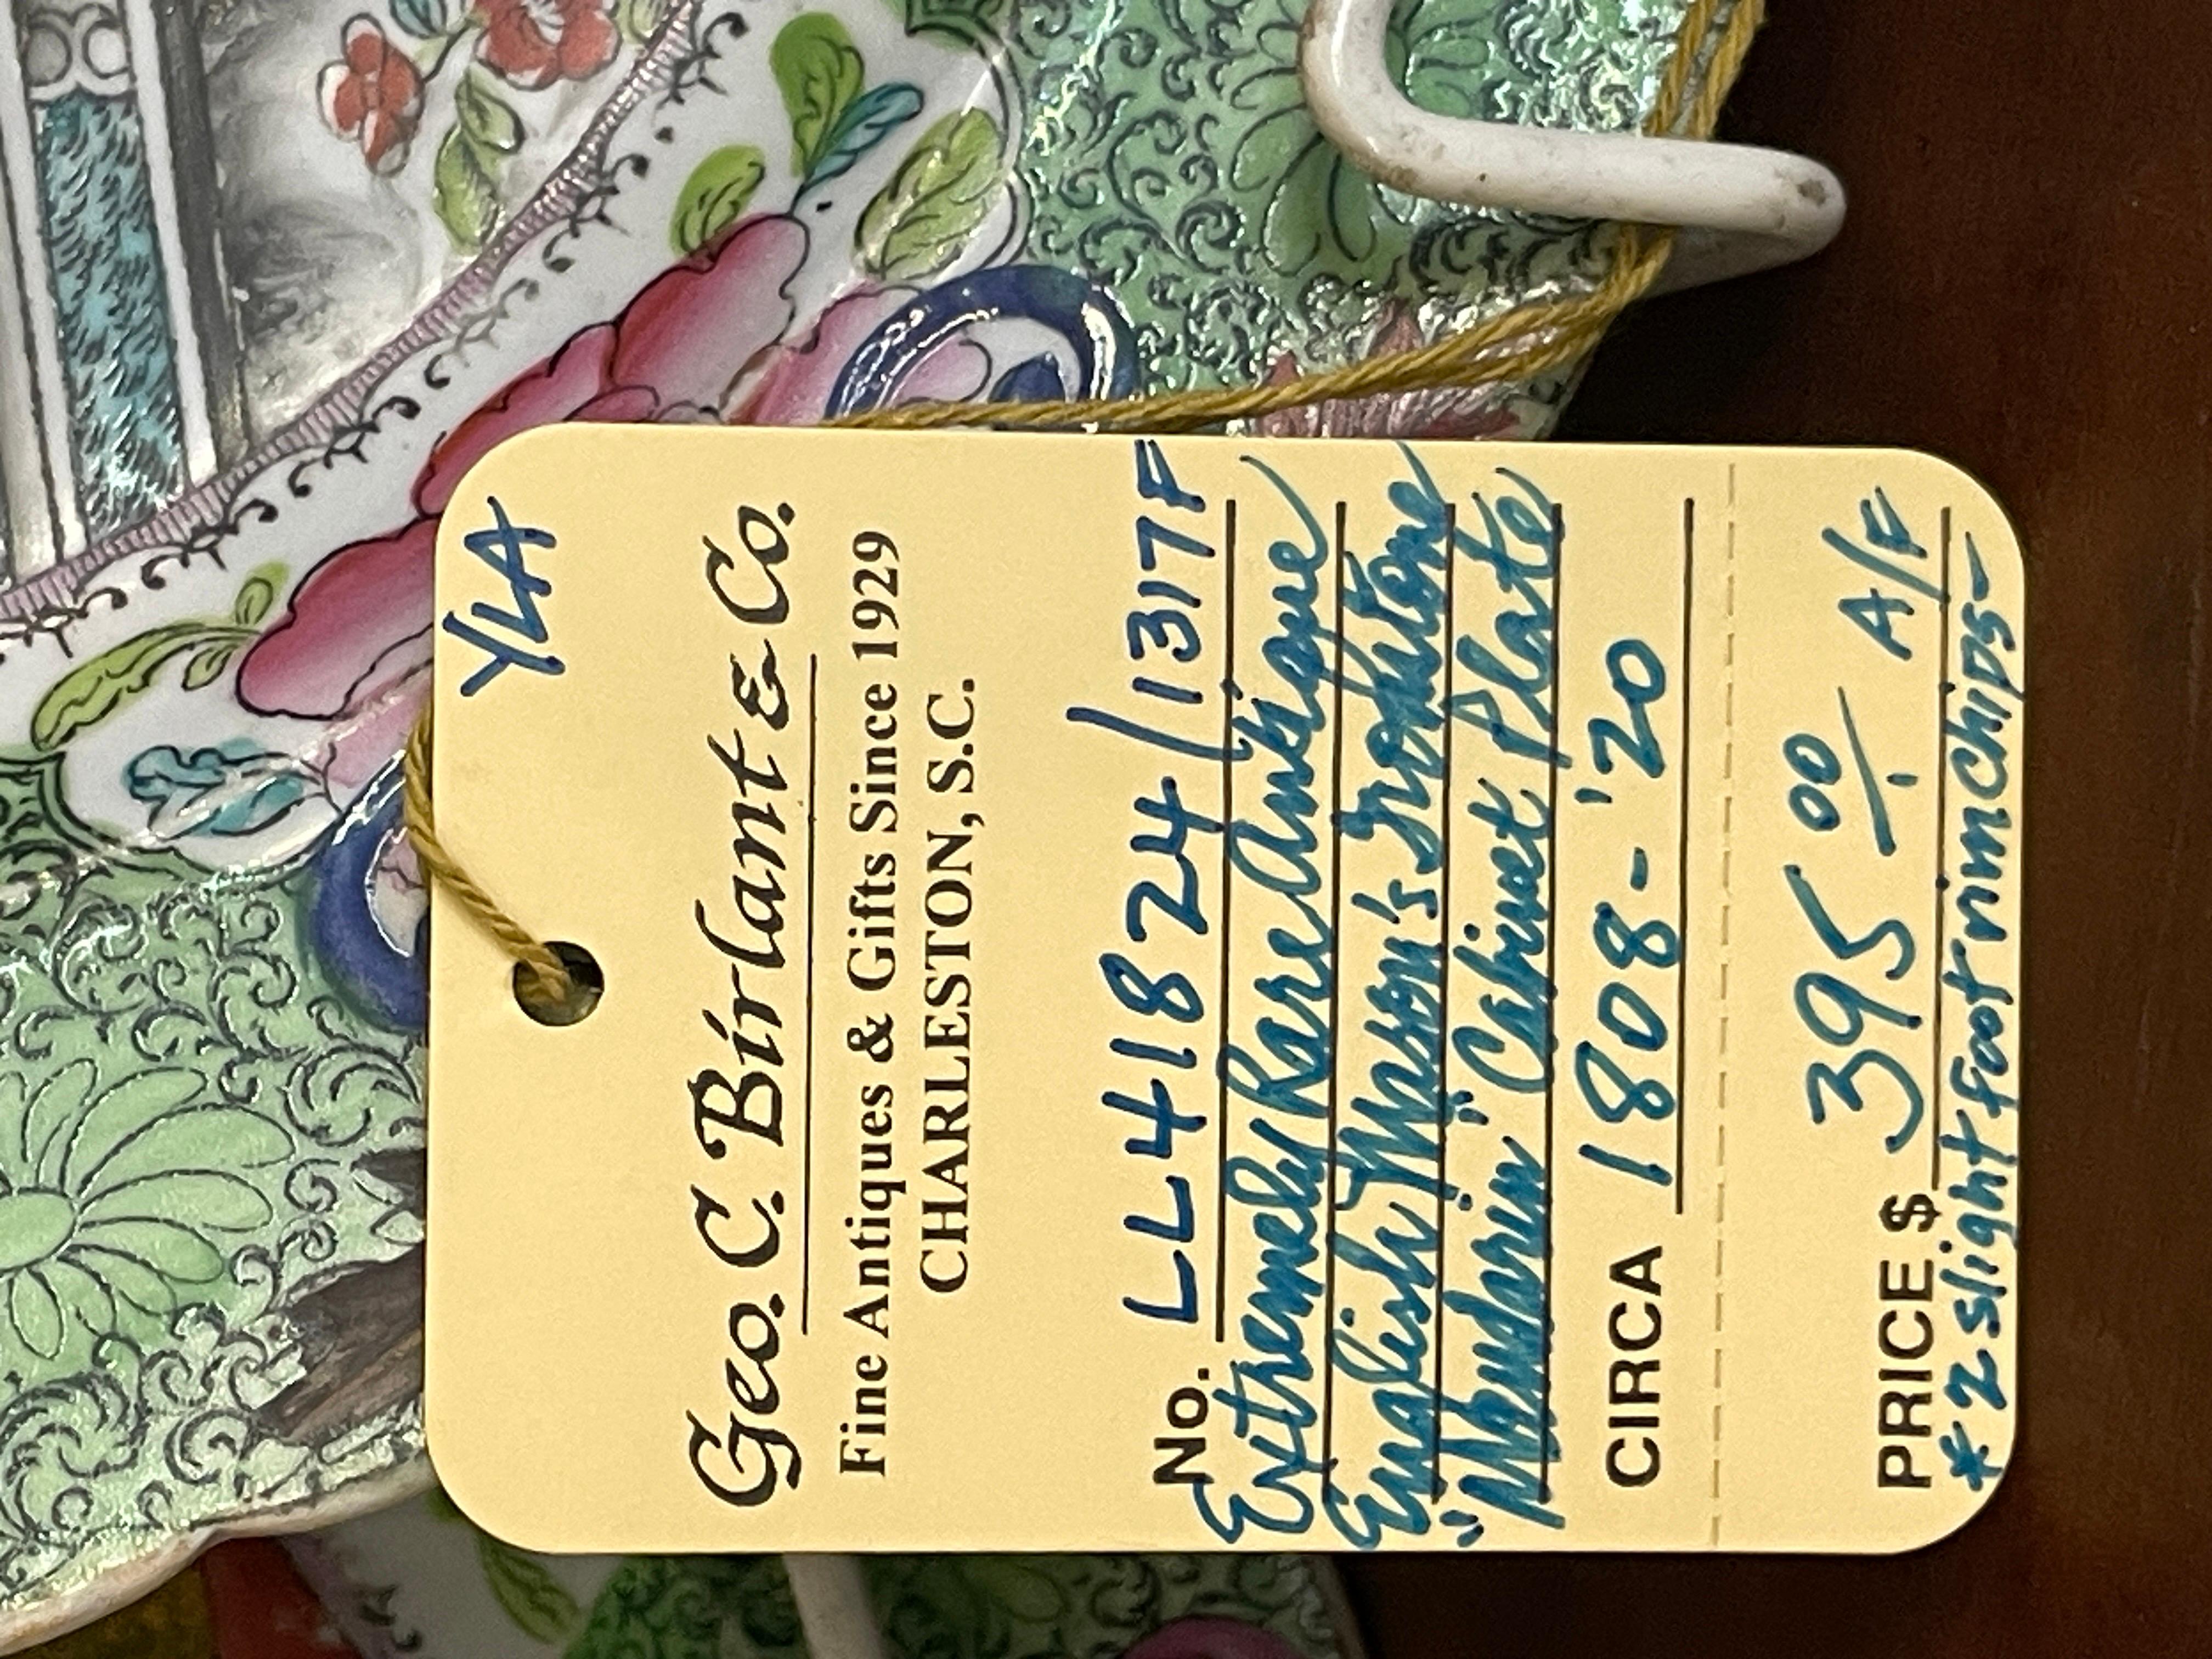 YLA
Geo. C. Birlant & Co.
Fine Antiques & Gifts Since 1929
CHARLESTON, S.C.
No. LL41824/1317F
Extremely Rare Antique
English Mason's Ironstone
"Mandarin" Cabinet Plate
CIRCA 1808-'20
PRICE $ 395 00 A/F
*2 slight foot rim chips-